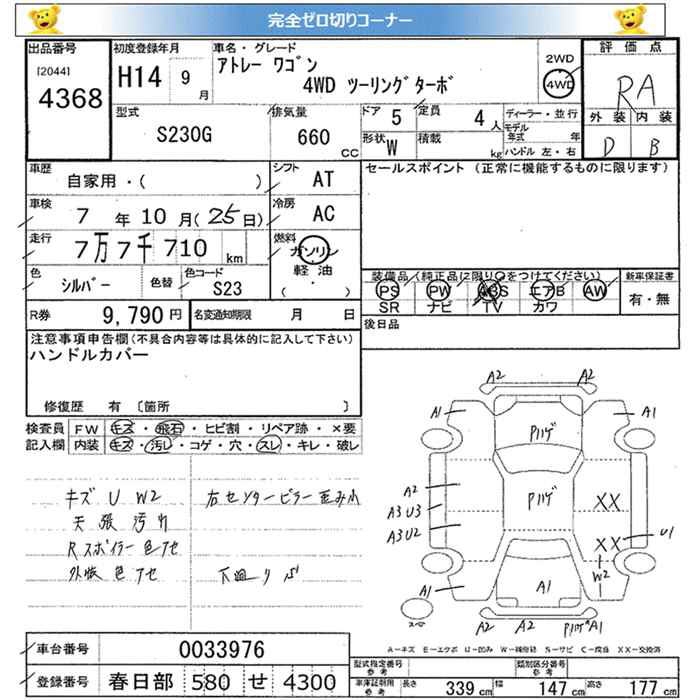 完全ゼロ切りコーナー
出品番号 初度登録年月 車名・グレード 評価点
[2044] 4368 H14 9月 アトレー ワゴン 2WD
4WD ツーリングターボ 4WD RA
型式 S230G 排気量 660 CC ドア 5 定員 4人 ディーラー・並行 外装 内装
形状 W 積載 kg モデル年式 年 ハンドル 左・右 D B
車歴 自家用・( ) シフト AT セールスポイント (正常に機能するものに限ります)
車検 7年10月(25日) 冷房 AC
走行 7万7千710km 燃料 ガソリン 軽油 ( ・ )
色 シルバー 色替 色コード S23
装備品(純正品に限り○をつけてください) 新車保証書
PS PW ABS エアB AW 有・無
SR ナビ TV カワ
R券 9,790円 名変通知期限 月 日 後日品
注意事項申告欄(不具合内容等は具体的に記入して下さい)
ハンドルカバー
修復歴 有 〔箇所 〕
検査員 FW キズ・飛石・ヒビ割・リペア跡・×要
記入欄 内装 キズ・汚レ・コゲ・穴・スレ・キレ・破レ
キズ U W2 右センターピラー歪み小
天張汚れ
Rスポイラー色アセ
外板色アセ 下廻りサビ
A2 A2
A1 A1
Pハゲ
A2 Pハゲ XX
A3U3
A3U2 XX U1
W2
A1 A1
A2 A2 PハゲA1
A−キズ E−エクボ U−凹み W−補修跡 S−サビ C−腐食 XX−交換済
車台番号 0033976
型式指定番号 参考 類別区分番号 参考
登録番号 春日部 580 せ 4300
車庫証明用 参考 長さ 339cm 幅 147cm 高さ 177cm